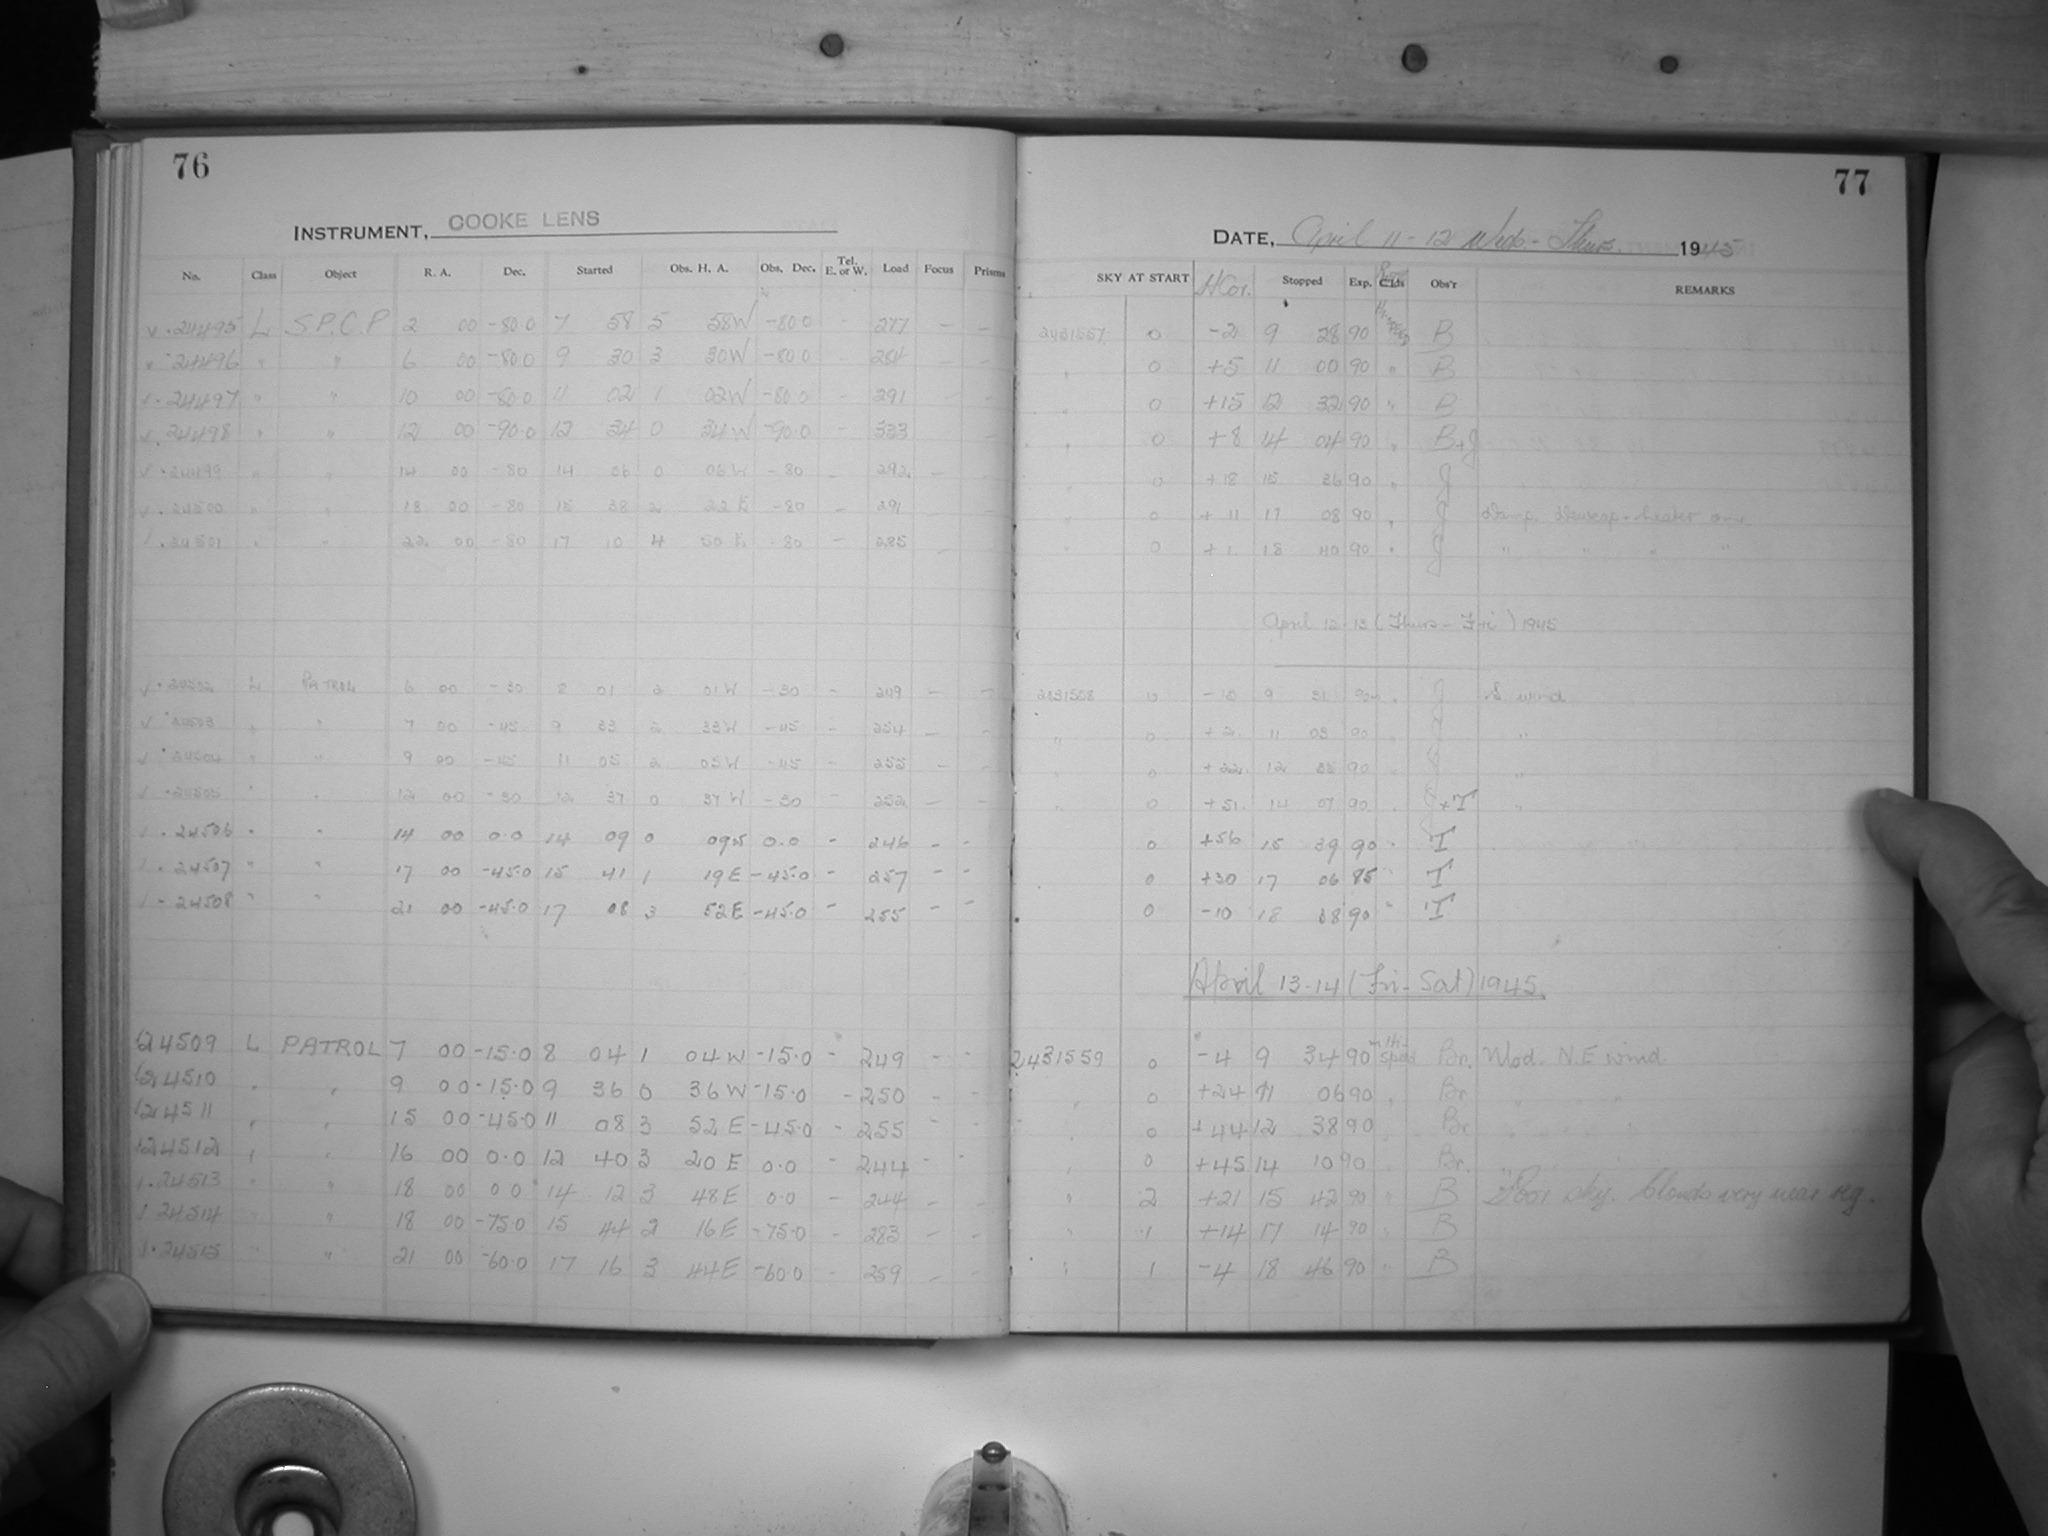 76
INSTRUMENT, COOKE LENS
No. Class Object R. A. Dec. Started Obs. H. A. Obs. Dec. Tel. E. or W. Load Focus Prisms
24495 L S.P.C.P 2 00 -80.0 7 58 5 58W -80.0 - 277 - -
24496 " " 6 00 -80.0 9 30 3 30W -80.0 - 284 - -
24497 " " 10 00 -80.0 11 02 1 02W -80.0 - 291 - -
24498 " " 12 00 -90.0 12 34 0 34W -90.0 - 333 -
24499 " " 14 00 -80 14 06 0 06W -80 - 292 - -
24500 " " 18 00 -80 15 38 2 22E -80 - 291 - -
24501 " " 22 00 -80 17 10 4 50E -80 - 285 - -
24502 L PATROL 6 00 -30 8 01 2 01W -30 - 249 - -
24503 " " 7 00 -45 9 33 2 33W -45 - 254 - -
24504 " " 9 00 -45 11 05 2 05W -45 - 255 - -
24505 " " 12 00 -30 12 37 0 37W -30 - 252 - -
24506 " " 14 00 0.0 14 09 0 09W 0.0 - 246 - -
24507 " " 17 00 -45.0 15 41 1 19E -45.0 - 257 - -
24508 " " 21 00 -45.0 17 08 3 52E -45.0 - 255 - -
24509 L PATROL 7 00 -15.0 8 04 1 04W -15.0 - 249 - -
24510 " " 9 00 -15.0 9 36 0 36W -15.0 - 250 - -
24511 " " 15 00 -45.0 11 08 3 52E -45.0 - 255 - -
24512 " " 16 00 0.0 12 40 3 20E 0.0 - 244 - -
24513 " " 18 00 0.0 14 12 3 48E 0.0 - 244 - -
24514 " " 18 00 -75.0 15 44 2 16E -75.0 - 283 - -
24515 " " 21 00 -60.0 17 16 3 44E -60.0 - 259 - -
77
DATE, April 11-12 Wed-Thurs. 1945
SKY AT START HCor. Stopped Exp. Clds Obs'r REMARKS
2431557 0 -2 9 28 90 B
" 0 +5 11 00 90 " B
" 0 +15 12 32 90 " B
" 0 +8 14 04 90 " B+J
" 0 +18 15 36 90 " J
" 0 +11 17 08 90 " J Damp. Dewcap-heater on.
" 0 +1 18 40 90 " J " " " "
April 12-13 (Thurs-Fri) 1945
2431558 0 -10 9 31 90 " J S. wind
" 0 +2 11 03 90 " J "
" 0 +22 12 35 90 " J "
" 0 +51 14 07 90 " J+T "
0 +56 15 39 90 " T
0 +30 17 06 85 " T
0 -10 18 38 90 " T
April 13-14 (Fri-Sat) 1945.
2431559 0 -4 9 34 90 Hi-speed Br. Mod. N.E wind.
" 0 +24 11 06 90 " Br " "
" 0 +44 12 38 90 Br " "
" 0 +45 14 10 90 Br. "
" 2 +21 15 42 90 " B Poor sky. Clouds very near reg.
" 1 +14 17 14 90 " B
" 1 -4 18 46 90 " B